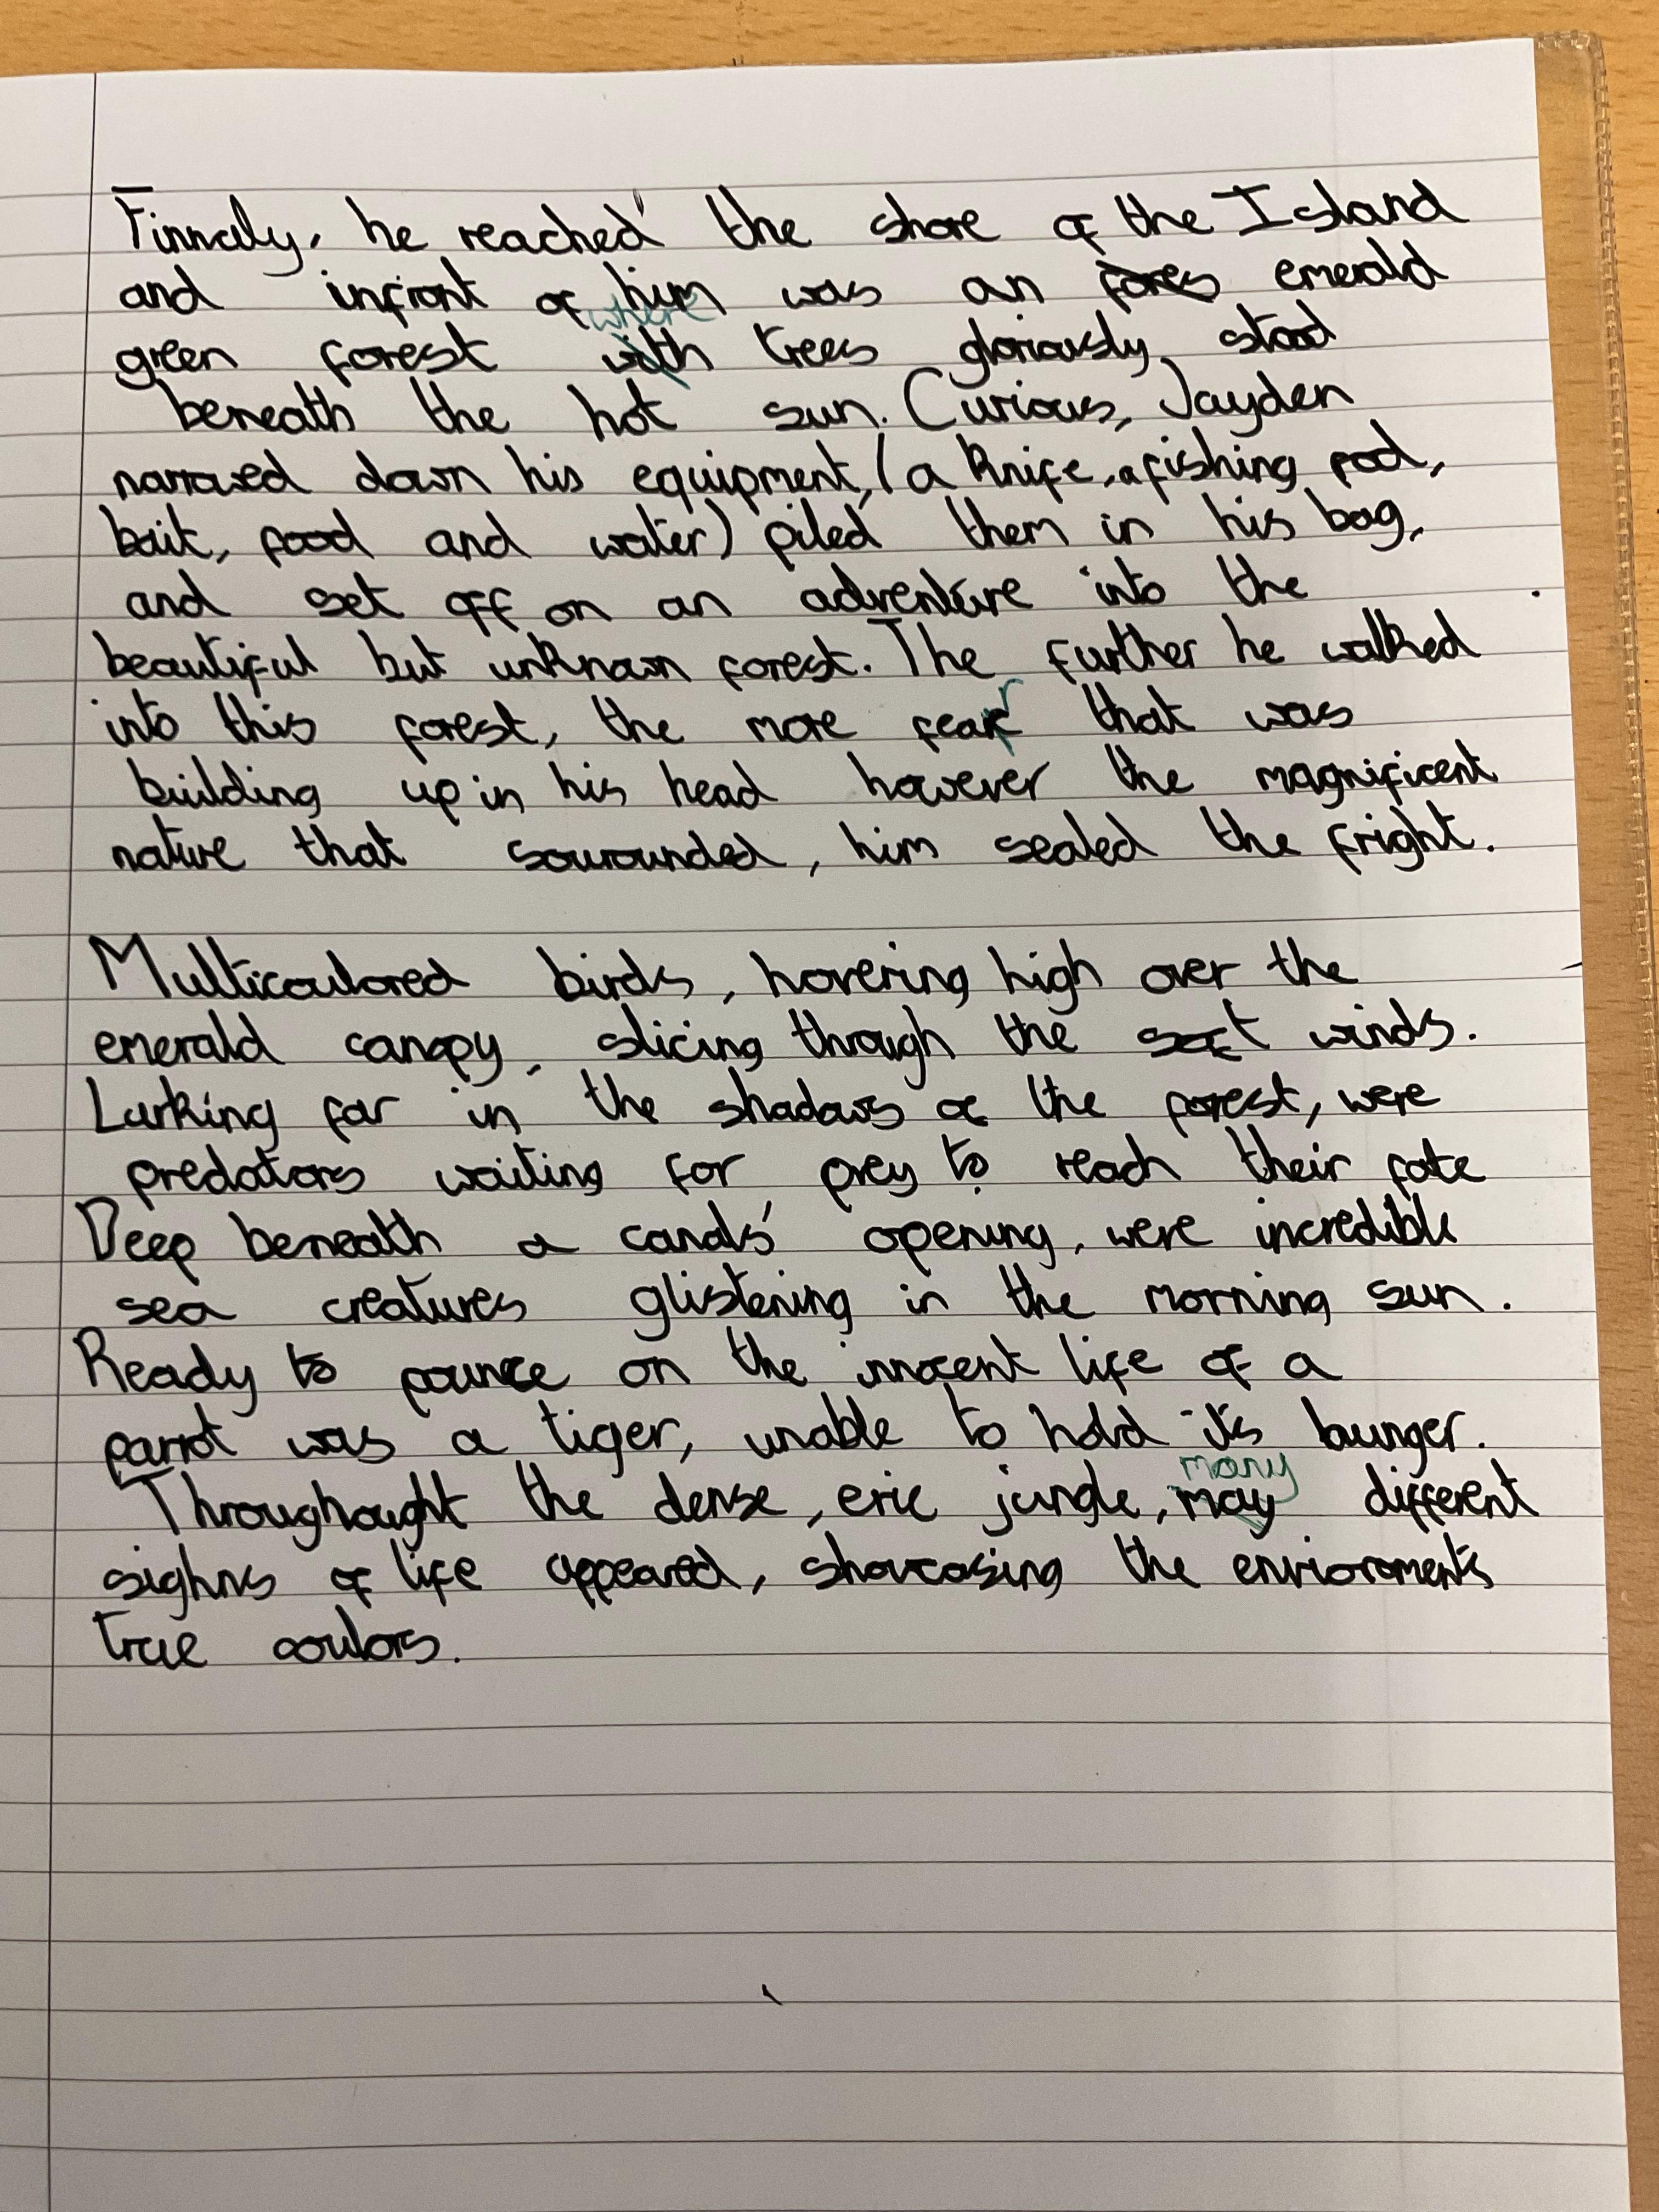 Finnaly, he reached the shore of the Island
and infront of him was an emerald
green forest where trees gloriously stood
beneath the hot sun. Curious, Jayden
narrowed down his equipment, (a knife, a fishing rod,
bait, food and water) piled them in his bag,
and set off on an adventure into the
beautiful but unknown forest. The further he walked
into this forest, the more fear that was
building up in his head however the magnificent
nature that sourounded, him sealed the fright.
Multicoulored birds, hovering high over the
emerald canopy, slicing through the winds.
Lurking far in the shadows of the forest, were
predators waiting for prey to reach their fate
Deep beneath a canals' opening, were incredible
sea creatures glistening in the morning sun.
Ready to pounce on the innocent life of a
parrot was a tiger, unable to hold it's hunger.
Throughought the dense, erie jungle, many different
sighns of life appeared, showcasing the enviroment's
true coulors.